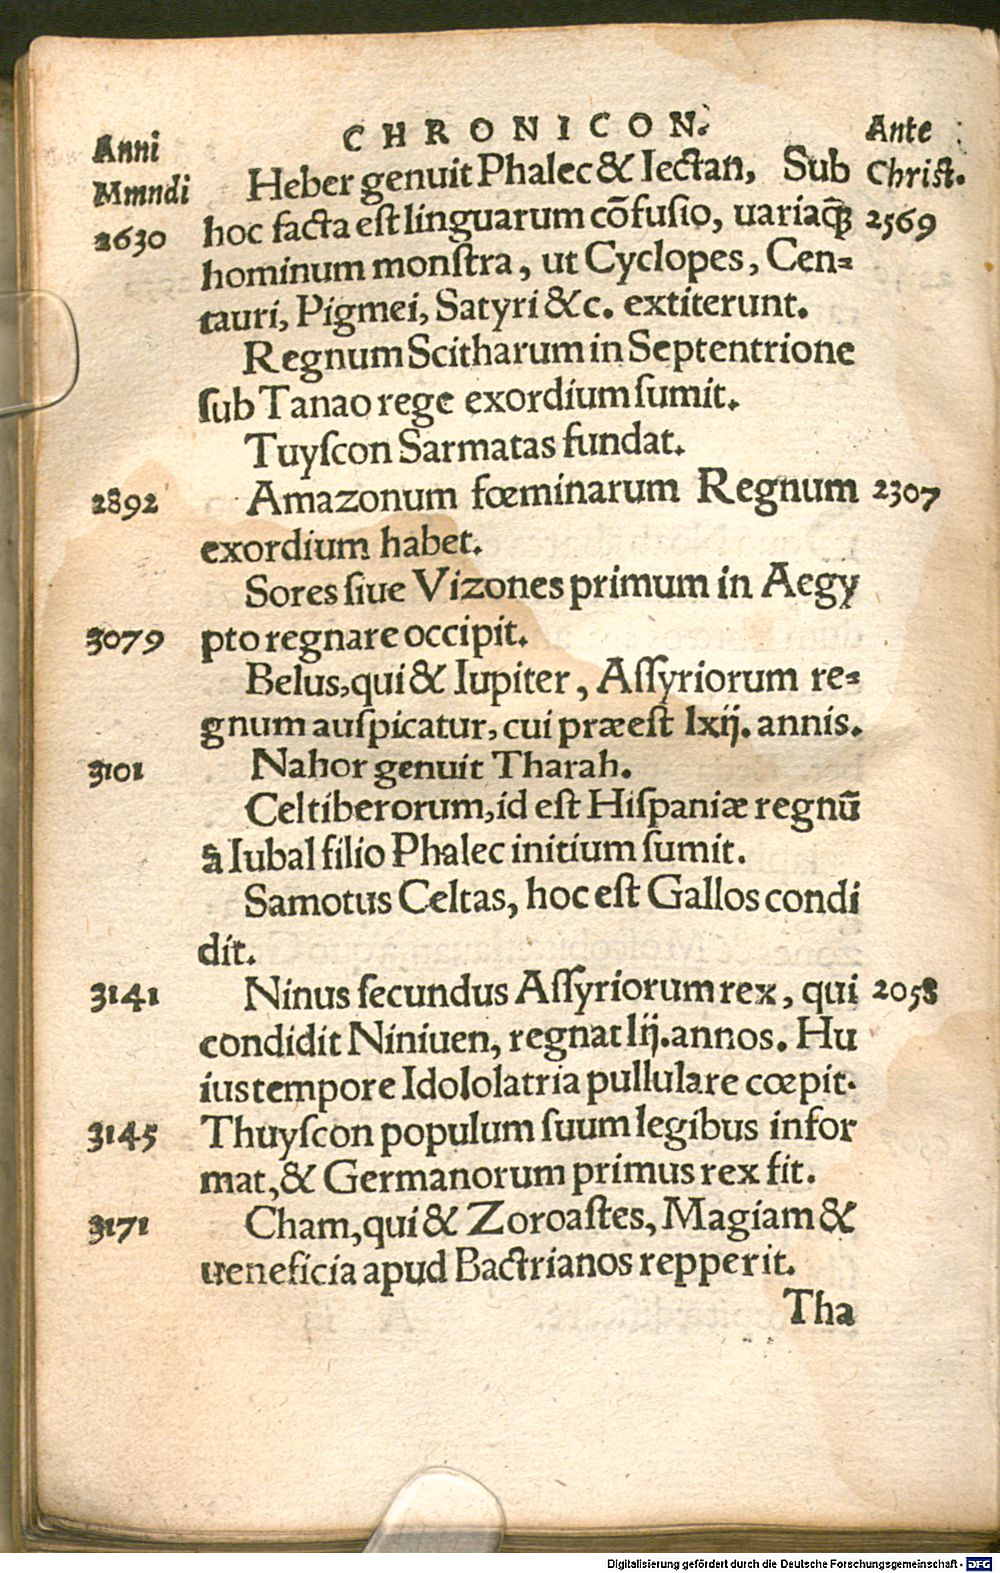 CHRONICON.
Anni
Mmndi
Ante
Christ.
Heber genuit Phalec & Iectan, Sub
2630 hoc facta est linguarum cõfusio, uariaq́; 2569
hominum monſtra, ut Cyclopes, Cen-
tauri, Pigmei, Satyri &c. extiterunt.
Regnum Scitharum in Septentrione
ſub Tanao rege exordium ſumit.
Tuyſcon Sarmatas fundat.
2892 Amazonum fœminarum Regnum 2307
exordium habet.
Sores ſiue Vizones primum in Aegy
3079 pto regnare occipit.
Belus, qui & Iupiter, Aſſyriorum re-
gnum auſpicatur, cui præeſt lxij. annis.
3101 Nahor genuit Tharah.
Celtiberorum, id eſt Hiſpaniæ regnũ
à Iubal filio Phalec initium ſumit.
Samotus Celtas, hoc eſt Gallos condi
dit.
3141 Ninus ſecundus Aſſyriorum rex, qui 2058
condidit Niniuen, regnat lij. annos. Hu
ius tempore Idololatria pullulare cœpit.
3145 Thuyſcon populum ſuum legibus infor
mat, & Germanorum primus rex fit.
3171 Cham, qui & Zoroaſtes, Magiam &
ueneficia apud Bactrianos repperit.
Tha
Digitalisierung gefördert durch die Deutsche Forschungsgemeinschaft - DFG